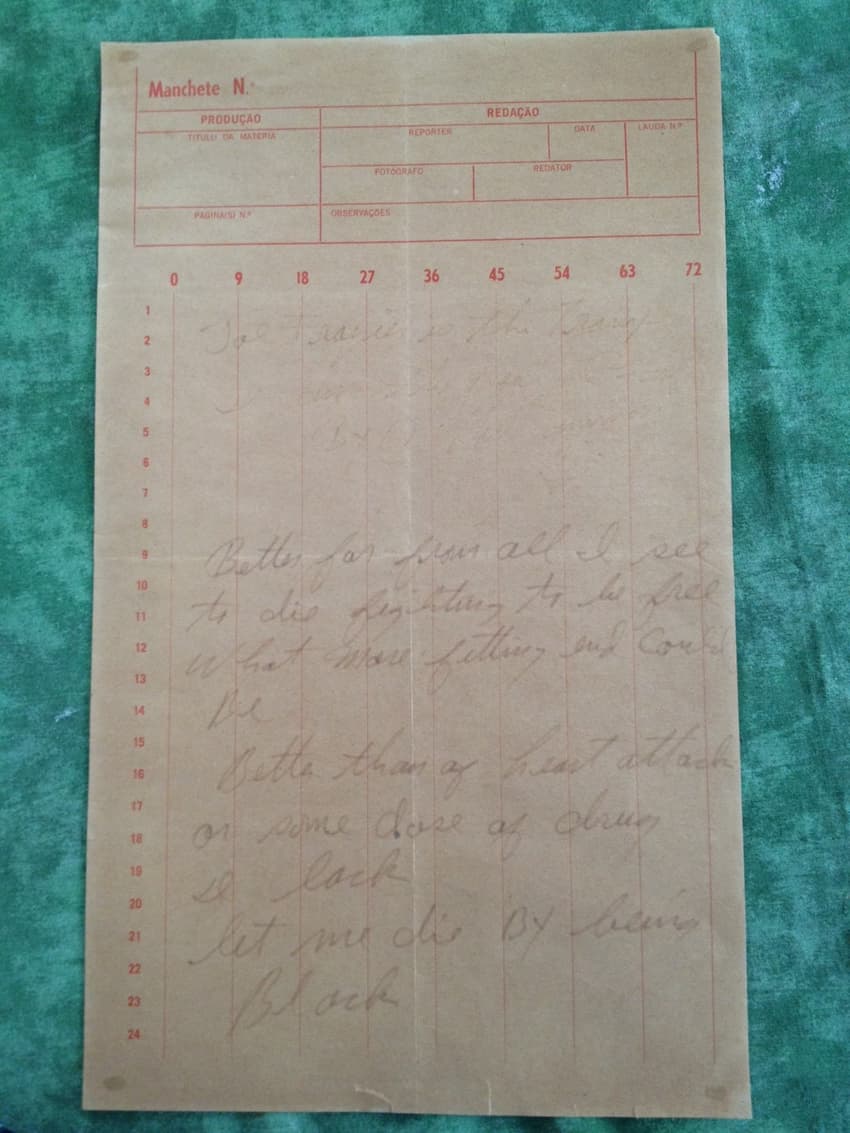 Manchete N.º
PRODUÇÃO
REDAÇÃO
TITULO DA MATERIA
REPORTER
DATA
LAUDA N.º
FOTOGRAFO
REDATOR
PAGINA(S) N.º
OBSERVAÇÕES
0 9 18 27 36 45 54 63 72
1
2
3
4
5
6
7
8
9
10
11
12
13
14
15
16
17
18
19
20
21
22
23
24
Joe is the
By
Better far from all I see
to die fighting to be free
What more fitting end could
Be
Better than of heart attack
or some dose of drug
I lack
let me die By being
Black